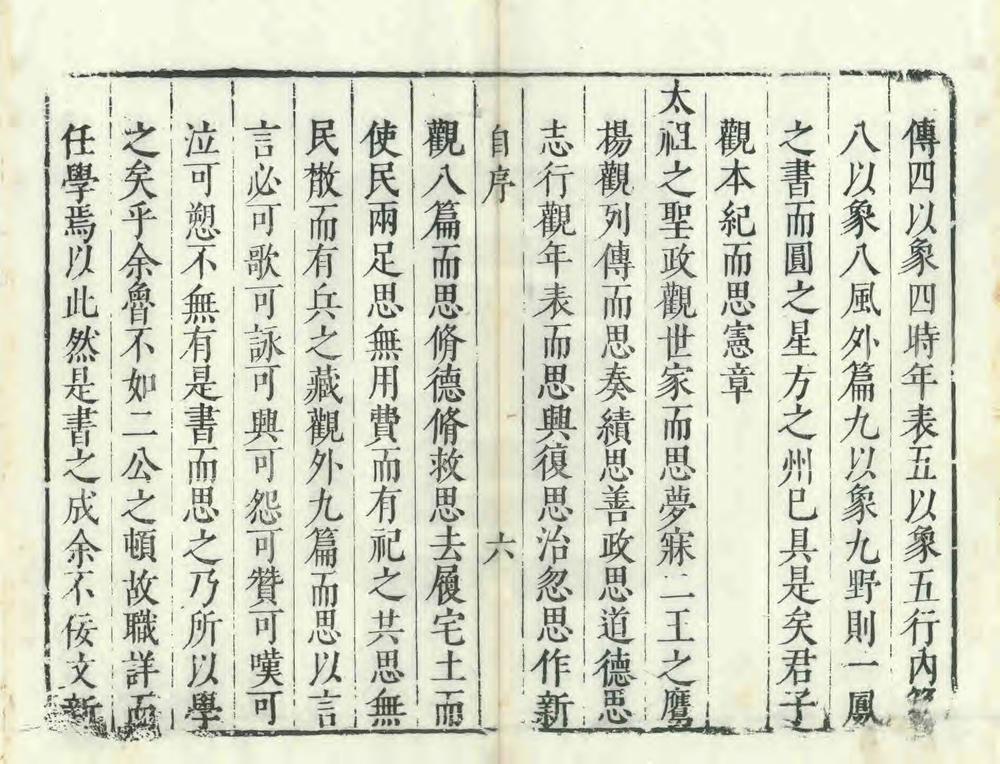 傳四以象四時年表五以象五行內篇
八以象八風外篇九以象九野則一鳳
之書而圓之星方之州巳具是矣君子
觀本紀而思憲章
太祖之聖政觀世家而思夢寐二王之鷹
楊觀列傳而思奏績思善政思道德思
志行觀年表而思興復思治忽思作新
自序 六
觀八篇而思脩德脩救思去履宅土而
使民兩足思無用費而有祀之共思無
民散而有兵之藏觀外九篇而思以言
言必可歌可詠可興可怨可贊可嘆可
泣可愬不無有是書而思之乃所以學
之矣乎余魯不如二公之頓故職詳而
任學焉以此然是書之成余不佞文新